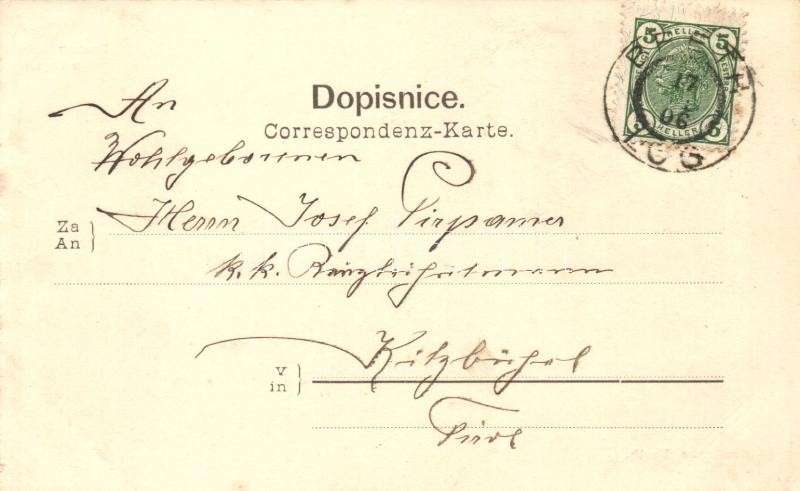 Dopisnice.
Correspondenz-Karte.
An
Wohlgebornen
Za
An
Herrn Josef Pirpamer
k. k.
V
in
Kitzbühel
Tirol
5 HELLER 5
17
06
5 HELLER 5